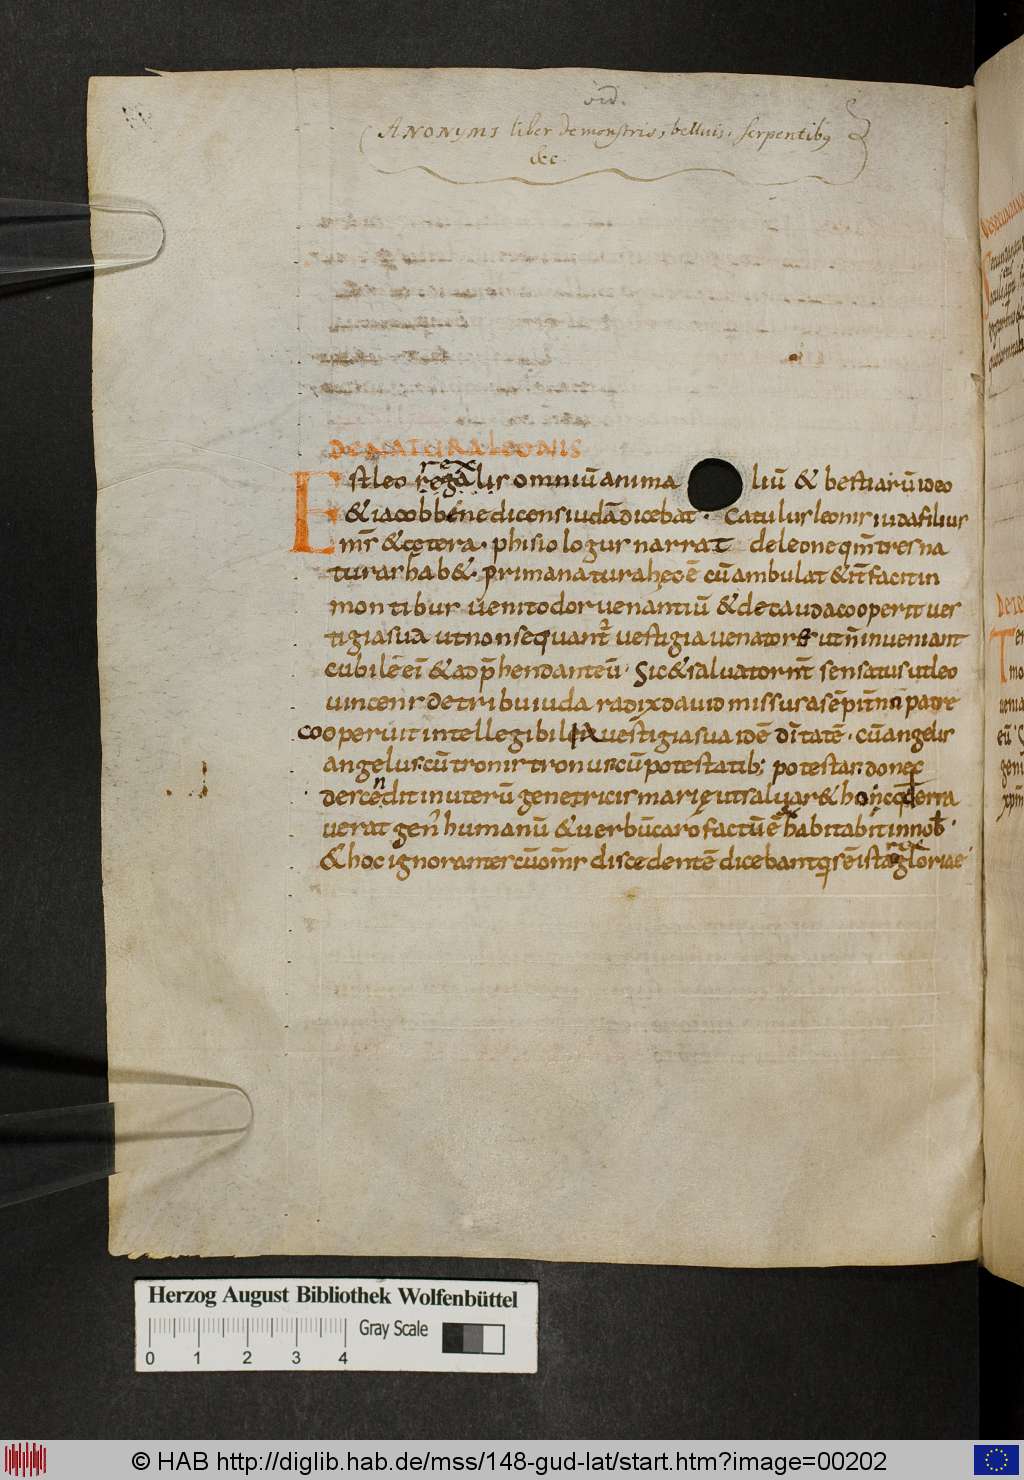 vid.
ANONYMI liber de monstris, belluis, serpentibus
&c.
DE NATURA LEONIS
rex
Est leo regalis omniū anima liū & bestiarū ideo
& iacob bene dicens iudā dicebat · Catulus leonis iuda filius
ms̄ & cętera · phisiologus narrat de leone qm̄ tres na
turas hab& · prima natura hęc ē cū ambulat & it̄ facit in
montibus uenit odor uenantiū & de cauda cooperit ues
tigia sua ut non sequant̄ uestigia uenatores ut n̄ inueniant
cubilē ei & adp̄hendant eū · Sic & saluator nr̄ sensatus ut leo
uincens de tribu iuda radix dauid missus a sēpit̄no patre
cooperuit intellegibilia uestigia sua idē dītatē · cū angelis
angelus · cū tronis tronus · cū potestatib; potestas · donec
n
descedit in uterū genetricis marię ut saluar& hoc qd̄ erra
uerat gen̄ humanū & uerbū caro factū ē & habitabit in nob̄ ·
rex
& hoc ignorantes cū oms̄ discedentē dicebant qs ē iste gloriae
Herzog August Bibliothek Wolfenbüttel
Gray Scale
0 1 2 3 4
© HAB http://diglib.hab.de/mss/148-gud-lat/start.htm?image=00202